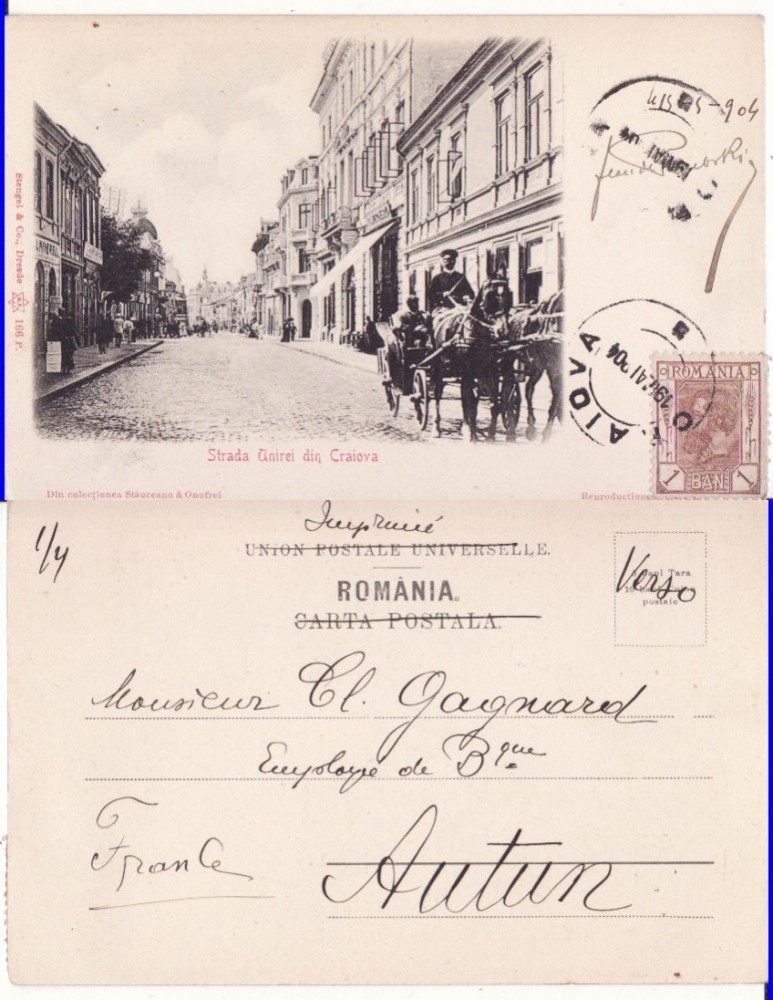 Stengel & Co., Dresde 166 P.
UNIVERSEL
Strada Unirei din Craiova
Din colecțiunea Stăuceanu & Onofrei
Reproductiunea
-904
AIOVA
ROMANIA
1 BAN 1
1/4
Imprimé
UNION POSTALE UNIVERSELLE.
ROMÂNIA.
CARTA POSTALA.
Verso
5 bani Tara
postale
Monsieur Cl. Gagnard
Employé de Bque
France
Autun